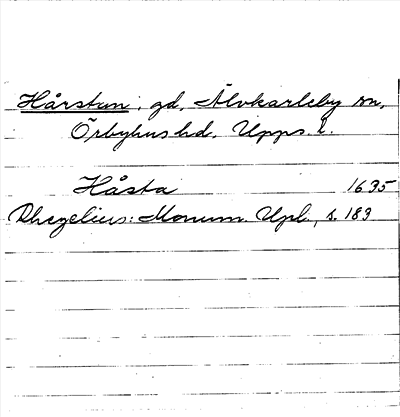 Hårstan, gd, Älvkarleby sn,
Örbyhus hd, Upps. l.
Håsta 1635
Rhezelius: Monum. Upl., s. 183